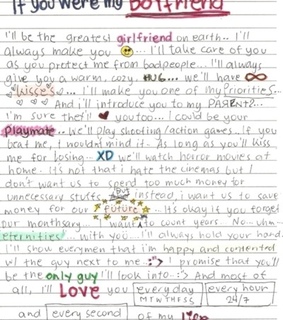 If you were my boyfriend
I'll be the greatest girlfriend on earth.. I'll
always make you ... I'll take care of you
as you protect me from bad people... I'll always
give you a warm, cozy HUG... we'll have ∞
kisses ... I'll make you one of my Priorities...
And i'll introduce you to my PARENTS..
i'm sure they'll ♥ you too... I could be your
playmate.. We'll play shooting/action games.. If you
beat me, I wouldn't mind it. As long as you'll kiss
me for losing. XD we'll watch horror movies at
home. It's not that i hate the cinemas but I
don't want us to spend too much money for
unnecessary stuffs, instead, i want us to save
money for our Future ... its okay if you forget
our monthsary. I want to count years. No-uhm-
eternities with you. I'll always hold your hand.
I'll show everymen that i'm happy and contented
w/ the guy next to me :") I promise that you'll
be the only guy I'll look into..:"> And most of
all, I'll Love you every day every hour
24/7
and every second of my life